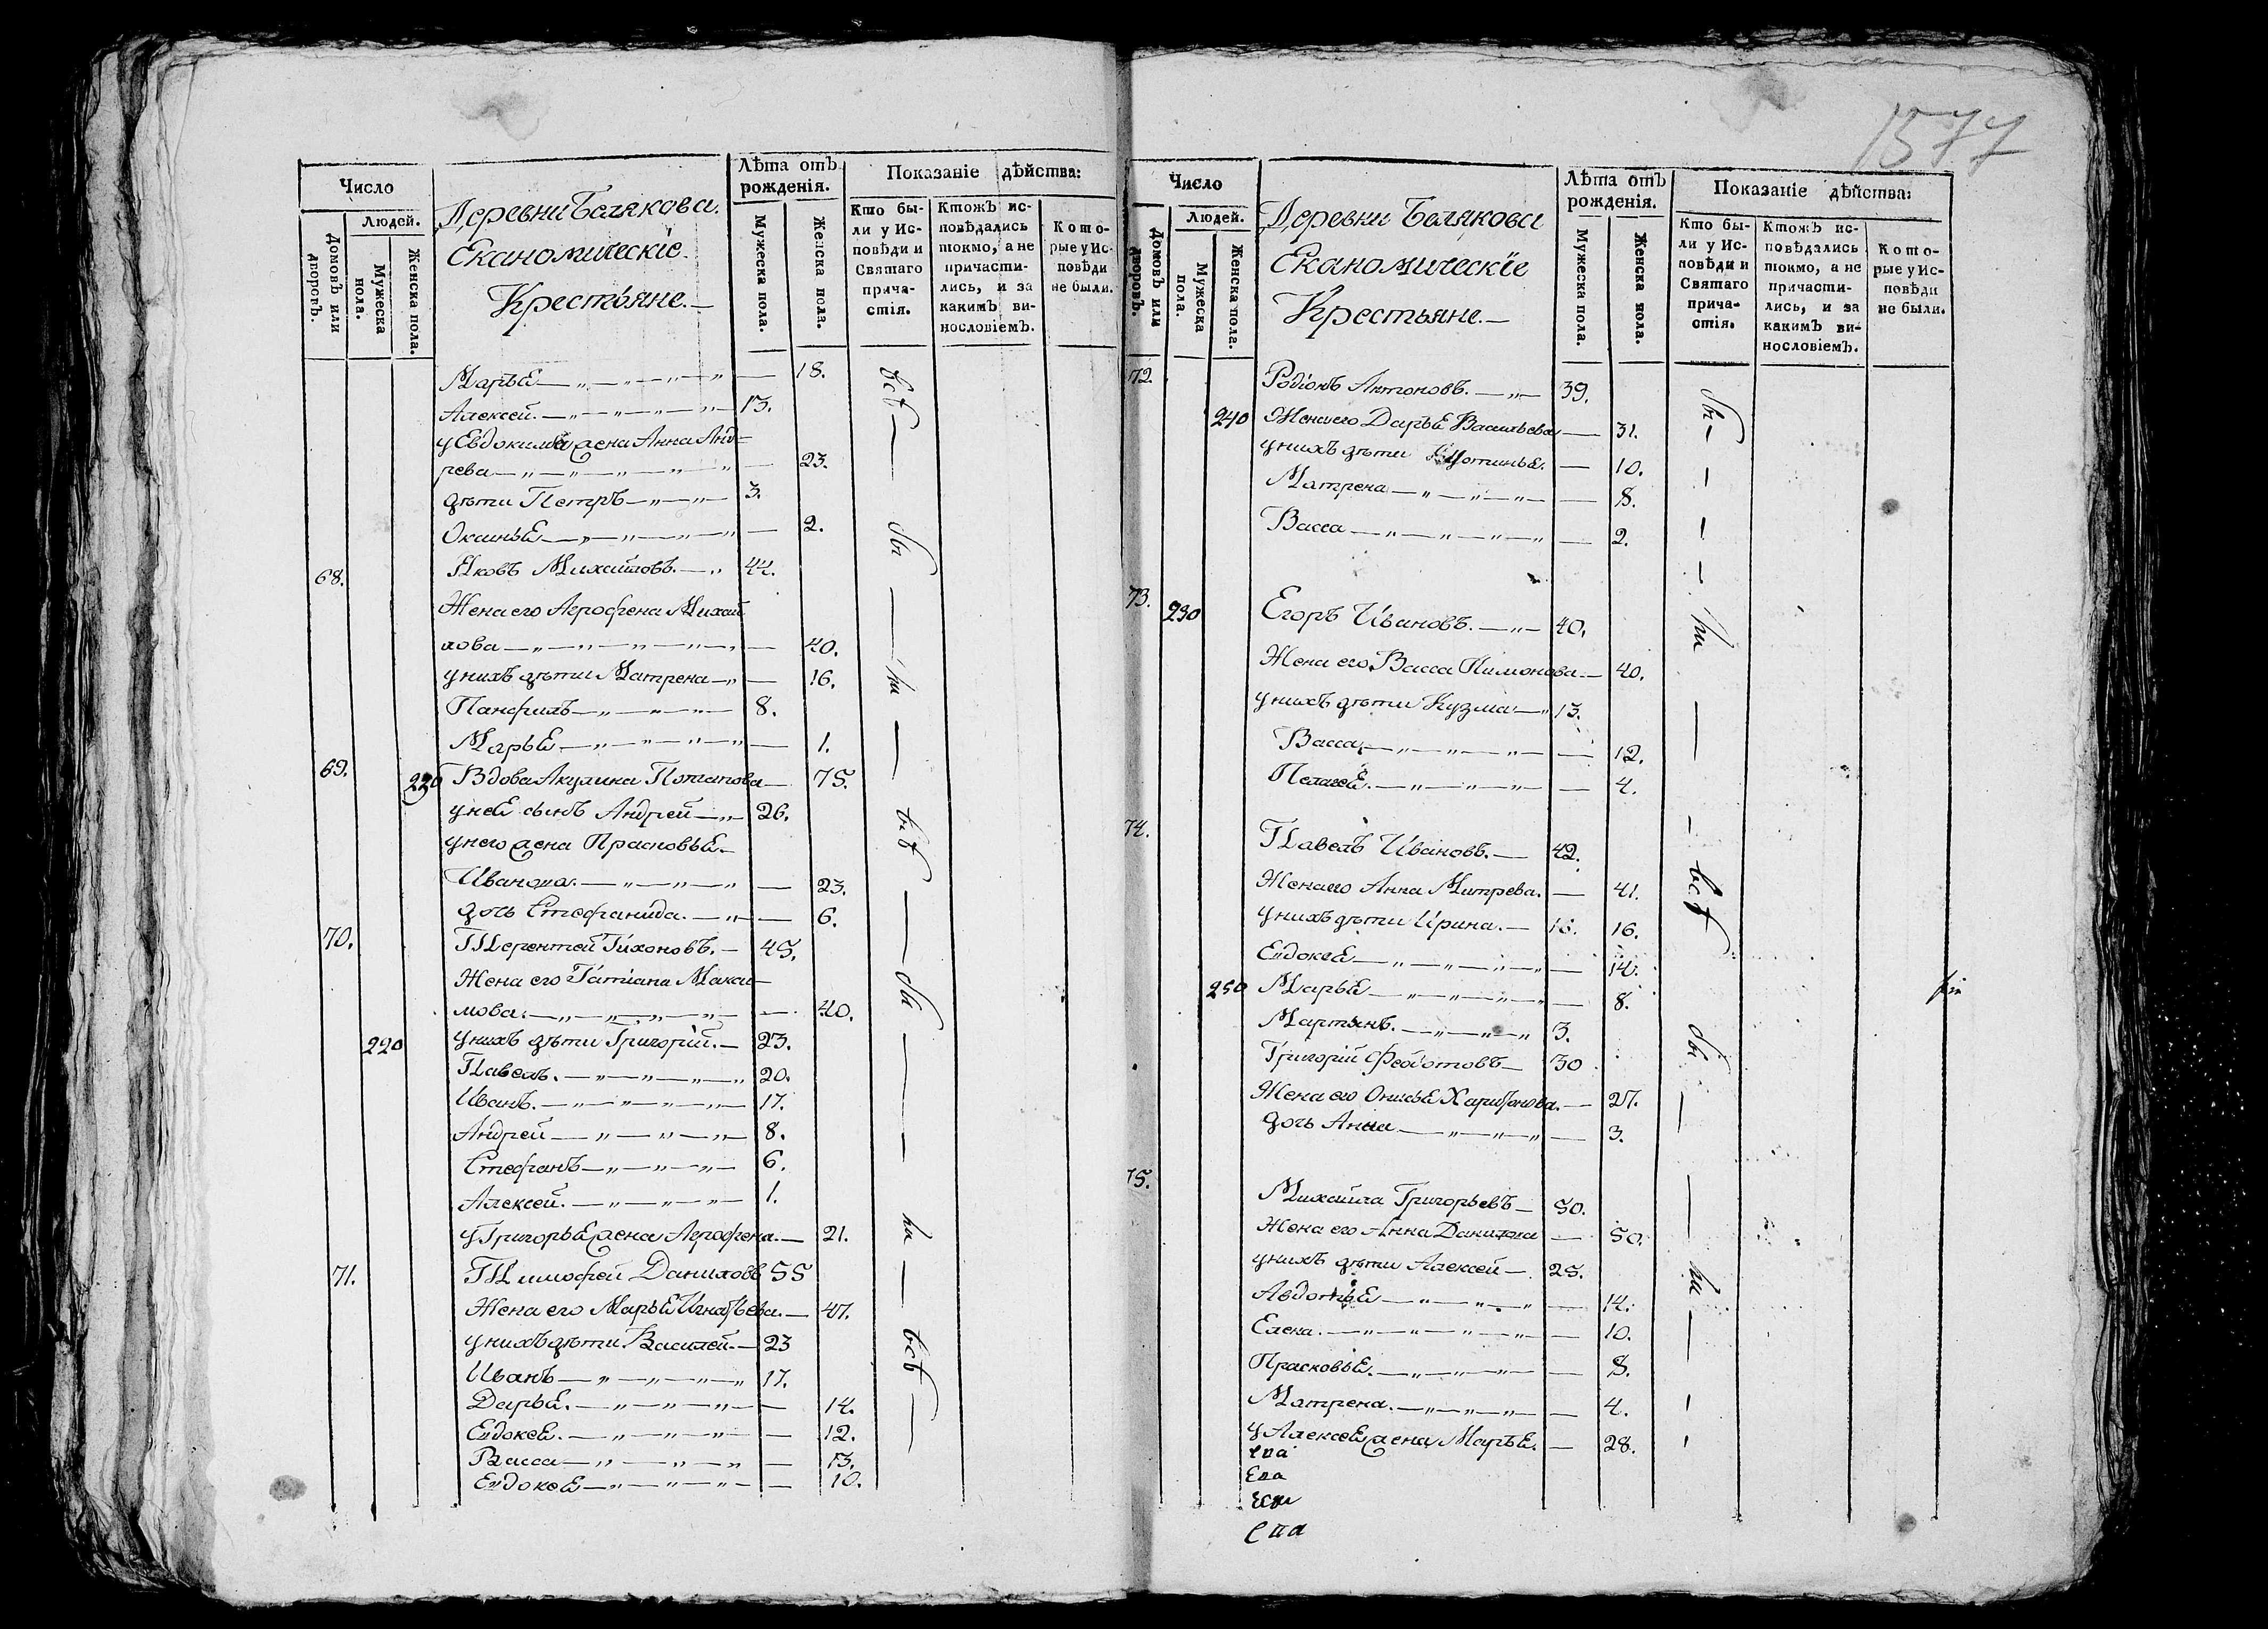 Число
Людей.
Домовъ или дворовъ.
Мужеска пола.
Женска пола.
Деревни Белякова.
Економическіе
Крестьяне.—
Лѣта отъ рожденія.
Мужеска пола.
Женска пола.
Показаніе дѣйства:
Кто были у Исповѣди и Святаго причастія.
Ктожъ исповѣдались токмо, а не причастились, и за какимъ винословіемъ.
Которые у Исповѣди не были.
Марья — 18.
Алексей. — 13.
у Евдокима жена Анна Анд-
рева — 23.
дѣти Петръ — 3.
Оксинья — 2.
68. Яковъ Михайловъ. — 44.
Жена его Агрофена Михай
лова — 40.
у нихъ дѣти Матрена — 16.
Панфилъ — 8.
Марья — 1.
69. 220 Вдова Акулина Потапова — 75.
у неё сынъ Андрей — 26.
у него жена Прасковья —
Иванова. — 23.
дочь Стефанида. — 6.
70. Терентей Тихоновъ. — 45.
Жена его Татіана Макси-
мова. — 40.
220 у нихъ дѣти Григорій. — 23.
Павелъ. — 20.
Иванъ. — 17.
Андрей — 8.
Стефанъ — 6.
Алексей. — 1.
у Григорья жена Агрофена. — 21.
71. Тимофей Даниловъ 55
Жена его Марья Игнатьева. — 47.
у нихъ дѣти Василей. — 23
Иванъ — 17.
Дарья. — 14.
Евдокея. — 12.
Васса — 13.
Евдокея — 10.
всѣ
бы
ли
всѣ
бы
ли
всѣ
1577
Число
Людей.
Домовъ или дворовъ.
Мужеска пола.
Женска пола.
Деревни Белякова
Економическіе
Крестьяне.—
Лѣта отъ рожденія.
Мужеска пола.
Женска пола.
Показаніе дѣйства:
Кто были у Исповѣди и Святаго причастія.
Ктожъ исповѣдались токмо, а не причастились, и за какимъ винословіемъ.
Которые у Исповѣди не были.
72. Родіонъ Антоновъ. — 39.
240 Жена его Дарья Васильева — 31.
у нихъ дѣти — 10.
Матрена — 8.
Васса — 2.
73. 230 Егоръ Ивановъ. — 40.
Жена его Васса Пимонова — 40.
у нихъ дѣти Кузма — 13.
Васса — 12.
Пелагея. — 4.
74. Павелъ Ивановъ. — 42.
Жена его Анна Митрева. — 41.
у нихъ дѣти Ирина. — 16. 16.
Евдокея — 14.
250 Марья — 8.
Мартынъ. — 3.
Григорій Федотовъ — 30
Жена его Онисья Харитонова. — 27.
дочь Анна — 3.
75. Михайла Григорьевъ — 50.
Жена его Анна Данилова — 50.
у нихъ дѣти Алексей — 25.
Авдотья — 14.
Елена. — 10.
Прасковья. — 8.
Матрена. — 4.
у Алексея жена Марья. — 28.
бы
ли
всѣ
бы
ли